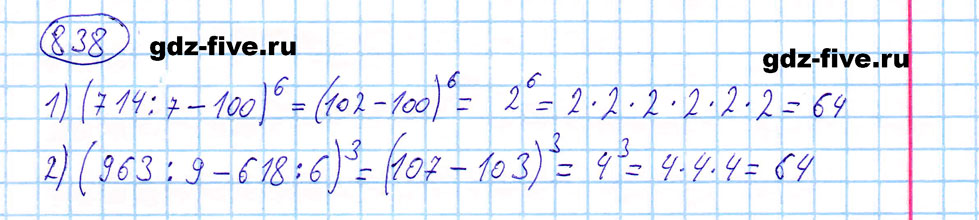 838
gdz-five.ru
gdz-five.ru
1) (714:7-100)⁶ = (102-100)⁶ = 2⁶ = 2·2·2·2·2·2 = 64
2) (963:9-618:6)³ = (107-103)³ = 4³ = 4·4·4 = 64